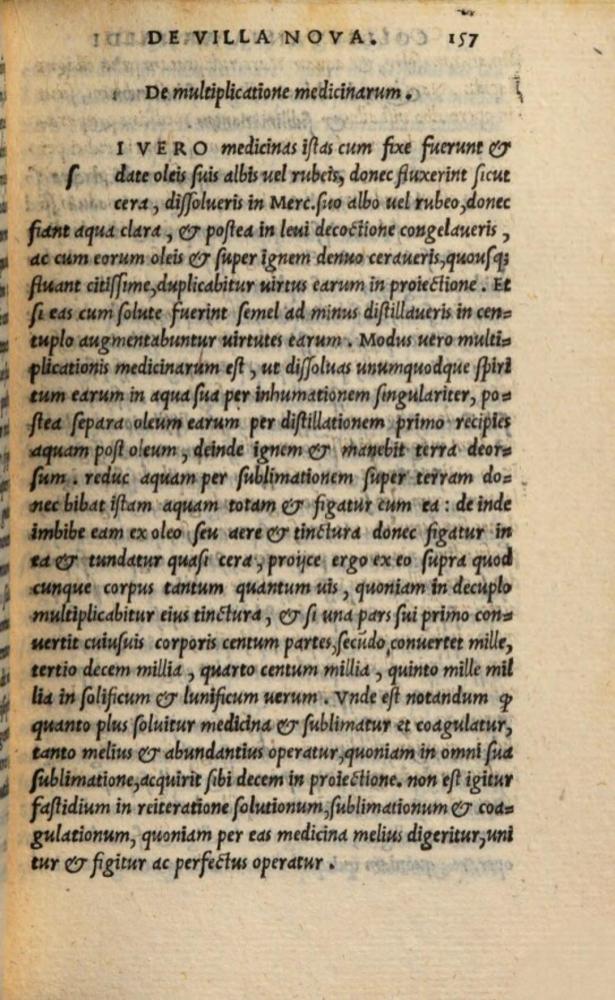 DE VILLA NOVA. 157
De multiplicatione medicinarum.
I VERO medicinas iſtas cum fixe fuerunt &
ſ date oleis ſuis albis uel rubeis, donec fluxerint ſicut
cera, diſſolueris in Merc. ſuo albo uel rubeo, donec
fiant aqua clara, & poſtea in leui decoctione congelaueris,
ac cum eorum oleis & ſuper ignem denuo ceraueris, quouſq;
fluant citiſſime, duplicabitur uirtus earum in proiectione. Et
ſi eas cum ſolute fuerint ſemel ad minus diſtillaueris in cen-
tuplo augmentabuntur uirtutes earum. Modus uero multi-
plicationis medicinarum eſt, ut diſſoluas unumquodque ſpiri
tum earum in aqua ſua per inhumationem ſingulariter, po-
ſtea ſepara oleum earum per diſtillationem primo recipies
aquam poſt oleum, deinde ignem & manebit terra deor-
ſum. reduc aquam per ſublimationem ſuper terram do-
nec bibat iſtam aquam totam & figatur cum ea: de inde
imbibe eam ex oleo ſeu aere & tinctura donec figatur in
ea & tundatur quaſi cera, proijce ergo ex eo ſupra quod
cunque corpus tantum quantum uis, quoniam in decuplo
multiplicabitur eius tinctura, & ſi una pars ſui primo con-
uertit cuiuſuis corporis centum partes, ſecūdo conuertet mille,
tertio decem millia, quarto centum millia, quinto mille mil
lia in ſolificum & lunificum uerum. Vnde eſt notandum ꝙ
quanto plus ſoluitur medicina & ſublimatur et coagulatur,
tanto melius & abundantius operatur, quoniam in omni ſua
ſublimatione, acquirit ſibi decem in proiectione. non eſt igitur
faſtidium in reiteratione ſolutionum, ſublimationum & coa-
gulationum, quoniam per eas medicina melius digeritur, uni
tur & figitur ac perfectus operatur.